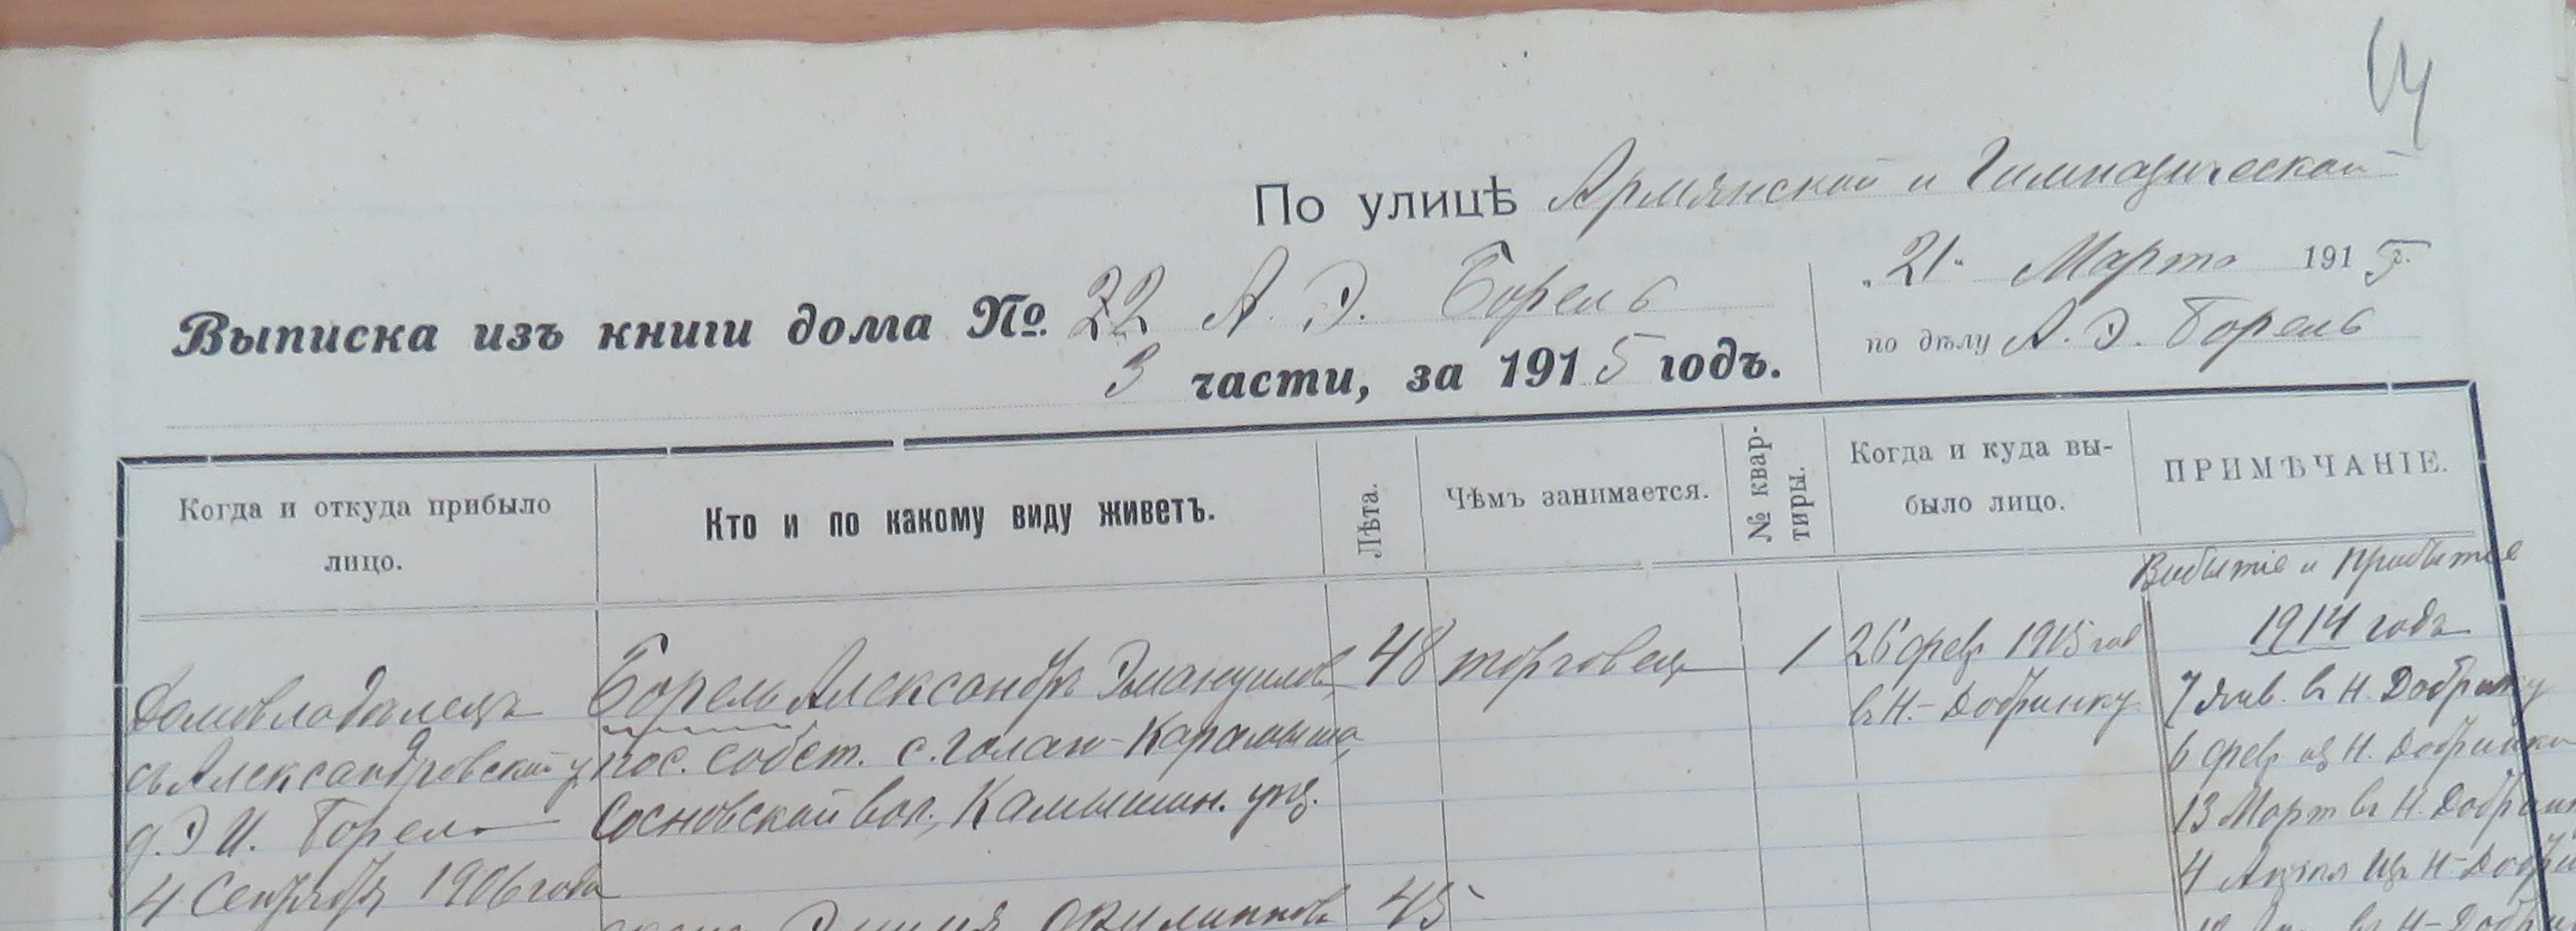 64
По улицѣ Армянской и Гимназической
Выписка изъ книги дома № 22 А. Э. Борель
3 части, за 1915 годъ.
„21“ Марта 1915 г.
по дѣлу А. Э. Борель
Когда и откуда прибыло лицо.
Кто и по какому виду живетъ.
Лѣта.
Чѣмъ занимается.
№ квар-
тиры.
Когда и куда вы-
было лицо.
ПРИМѢЧАНІЕ.
Домовладѣлецъ
съ Александровской у.
д. Э И. Борель
4 Сентября 1906 года
Борель Александръ Эмануилов,
пос. собст. с. Голан-Карамыша,
Сосновской вол., Камышин. уѣз.
48
торговецъ
1
26 февр 1915 год
въ Н.-Добринку
Выбытіе и прибытіе
1914 годъ
7 Янв. въ Н. Добринку
6 февр из Н. Добринки
13 Март въ Н. Добрин
4 Апрѣл Из Н-Добри
Эмилія Филиппов
45
въ Н-Добри